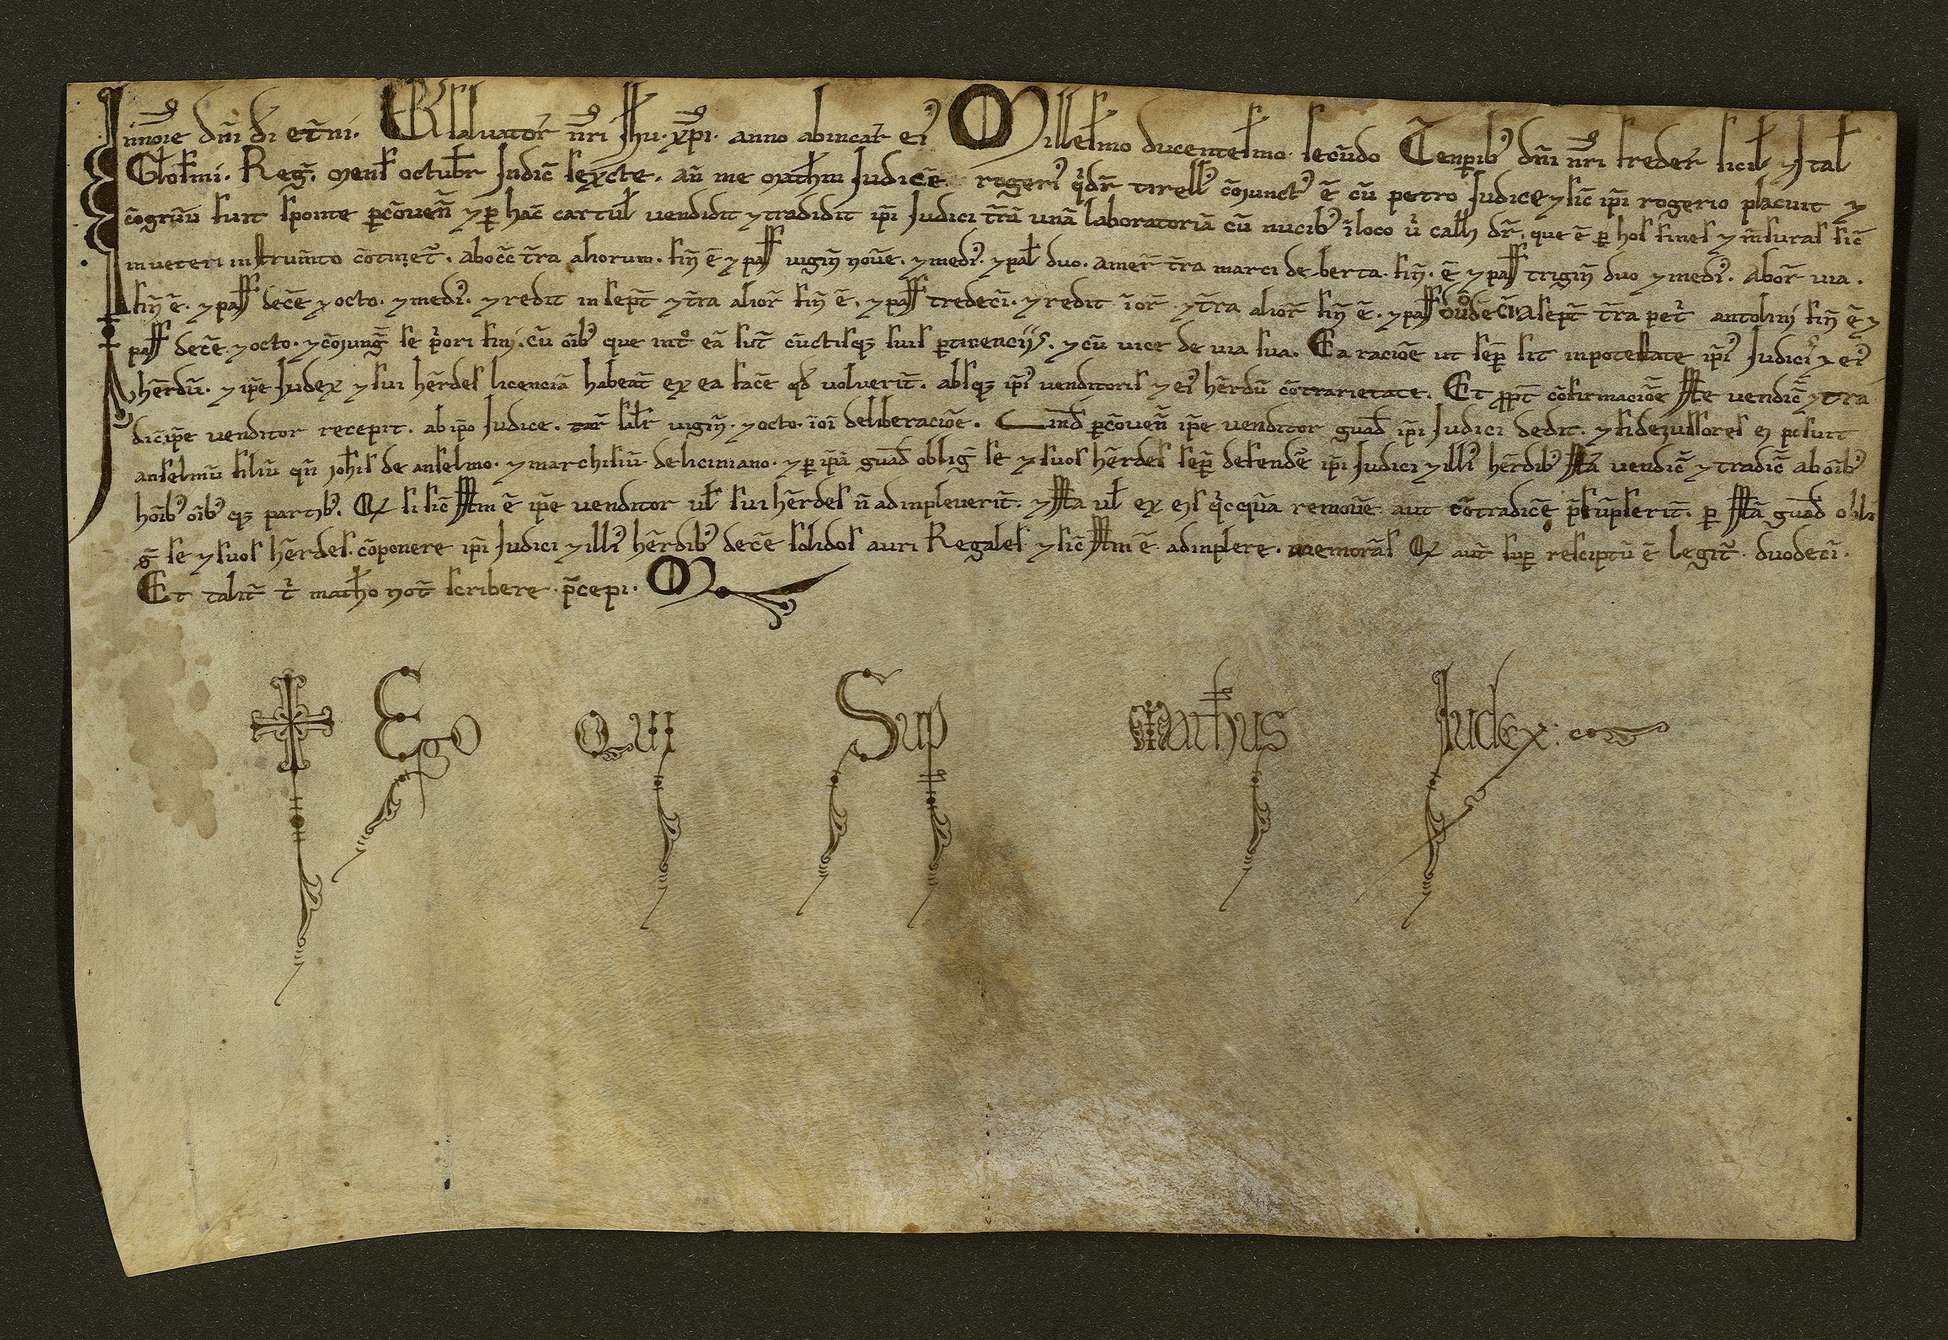 In noīe dn̄i dī et̄ni. Et saluator̄ n̄ri Ih̄u xp̄i anno ab incar̄ ei' Millesīmo ducentesīmo secūdo Tenporib' dn̄i n̄ri freder̄ sicil̄ et Ital̄
Gl̄osīmi Reḡ. mens̄ octubr̄ Indic̄ sexcte. an̄ me math̄m Iudicē. rogeri' qⁱdr̄ tirell' cōiunct' ē cū petro Iudice et sic̄ ip̄i rogerio placuit et
cōgruū fuit sponte p̱cōuen̄ et p̱ hac̄ cartul̄ vendidit et tradidit ip̄i Iudici t̄rā vnā laboratoriā cū nucib' ī loco dr̄. que ē p̱ hos fines et m̄suras sic̄
in ueteri instrum̄to cōtinet̄. ab occ̄ t̄ra aliorum. fin̄ ē et pass̄ uigin̄ nouē. et medi'. et pal̄ duo. a mer̄ t̄ra marci de berta. fin̄. ē et pass̄ trigin̄ duo et medi'. ab or̄ uia.
fin̄ ē. et pass̄ decē et octo. et medi'. et redit in sept̄ et t̄ra alior̄ fin̄ ē. et pass̄ tredecī. et redit ī or̄. et t̄ra alior̄ fin̄ ē. et pass̄ duodecī. a sept̄ t̄ra pet' antolini fin̄ ē et
pass̄ decē. et octo. et cōiunḡ se pⁱori fini. cū oīb' que int̄ eā sūt cūctisq; suis p̱tinenciis. et cū uice de uia sua. Ea raciōe ut sep̱ sit in potestate ip̄i' Iudici' et ei'
h̄erdū. et ip̄e Iudex et sui h̄erdes licenciā habeāt ex ea facē qd̄ voluerīt. absq; ip̄i' venditoris et ei' h̄erdū cōtrarietate. Et p̱p̱t̄ cōfirmaciōe ss̄te vendic̄ et tra
dic̄ ip̄e venditor recepit. ab ip̄o Iudice. tar̄ sicil̄r uigin̄. et octo. īoī deliberaciōe. Vnd̄ p̱cōuen̄ ip̄e venditor guad̄ ip̄i Iudici dedit. et fideiussores ei posuit
anselmū filiū qn̄ ioh̄is de anselmo. et marchisiū de liciniano. et p̱ ip̄ā guad̄ obliḡ se et suos h̄erdes sep̱ defendē ip̄i Iudici et illi' h̄erdib' ss̄tā vendic̄ et tradic̄ ab oīb'
hoīb' oīb' q; partib'. Qd̄ si sic̄ ss̄tm ē ip̄e venditor ul̄ sui h̄erdes n̄ adinpleuerīt. et ss̄ta ul̄ ex eis qⁱcquā remouē aut cōtradicē p̄sūpserīt. p̱ ss̄tā guad̄ obli
ḡ se et suos h̄erdes. cōponere ip̄i Iudici et illi' h̄erdib' decē solidos auri Regales et sic̄ ss̄tm ē adinplere. memorās Qd̄ aut̄ sup̱ resciptū ē legit̄. duodecī.
Et talit̄ t' matho not̄ scribere p̄cepi. M
Ego Qui Sup̱ mathus Iudex: